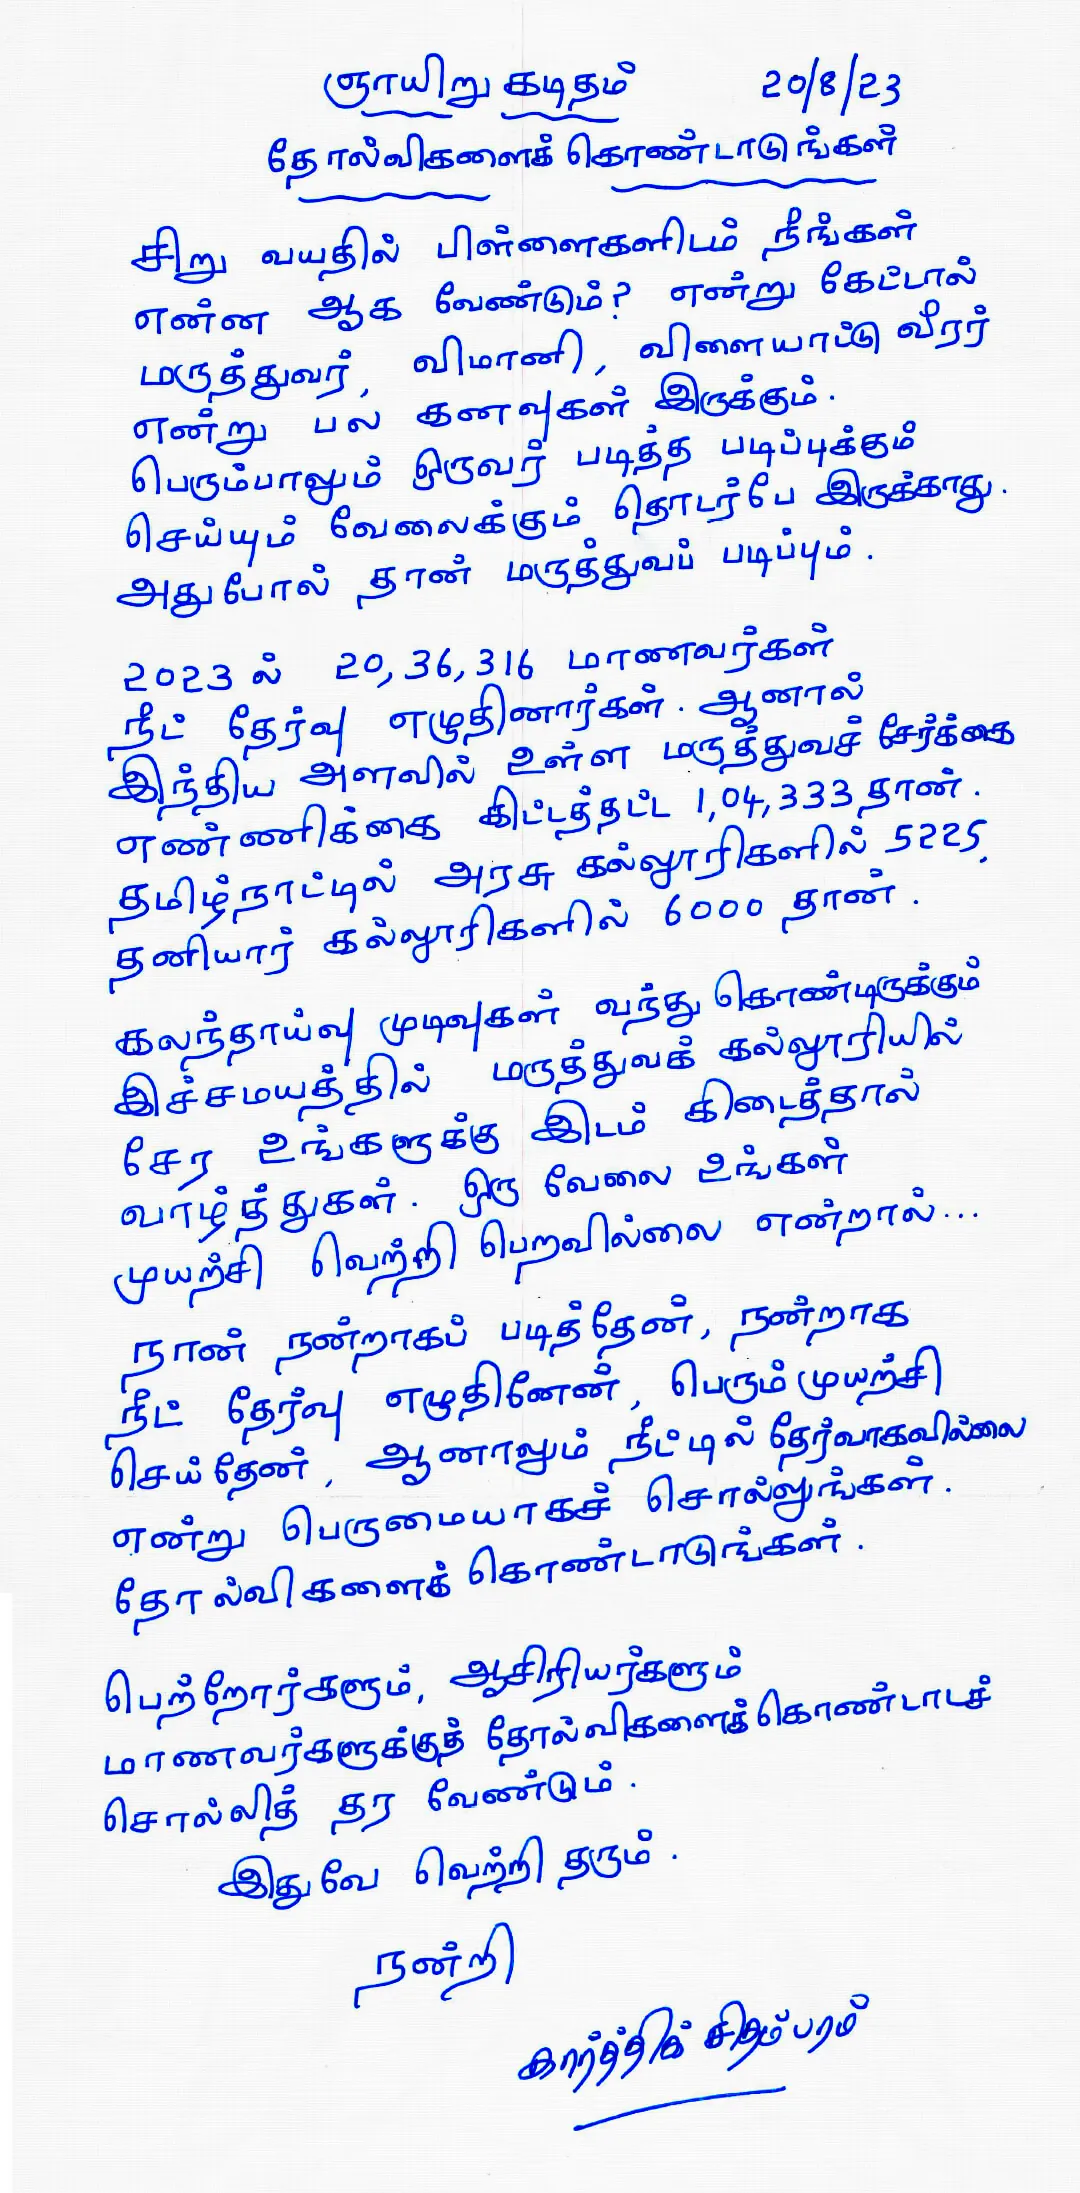 ஞாயிறு கடிதம் 20/8/23
தோல்விகளைக் கொண்டாடுங்கள்
சிறு வயதில் பிள்ளைகளிடம் நீங்கள்
என்ன ஆக வேண்டும்? என்று கேட்டால்
மருத்துவர், விமானி, விளையாட்டு வீரர்
என்று பல கனவுகள் இருக்கும்.
பெரும்பாலும் ஒருவர் படித்த படிப்புக்கும்
செய்யும் வேலைக்கும் தொடர்பே இருக்காது.
அதுபோல் தான் மருத்துவப் படிப்பும்.
2023 ல் 20,36,316 மாணவர்கள்
நீட் தேர்வு எழுதினார்கள். ஆனால்
இந்திய அளவில் உள்ள மருத்துவச் சேர்க்கை
எண்ணிக்கை கிட்டத்தட்ட 1,04,333 தான்.
தமிழ்நாட்டில் அரசு கல்லூரிகளில் 5225,
தனியார் கல்லூரிகளில் 6000 தான்.
கலந்தாய்வு முடிவுகள் வந்து கொண்டிருக்கும்
இச்சமயத்தில் மருத்துவக் கல்லூரியில்
சேர உங்களுக்கு இடம் கிடைத்தால்
வாழ்த்துகள். ஒரு வேலை உங்கள்
முயற்சி வெற்றி பெறவில்லை என்றால்...
நான் நன்றாகப் படித்தேன், நன்றாக
நீட் தேர்வு எழுதினேன், பெரும் முயற்சி
செய்தேன், ஆனாலும் நீட்டில் தேர்வாகவில்லை
என்று பெருமையாகச் சொல்லுங்கள்.
தோல்விகளைக் கொண்டாடுங்கள்.
பெற்றோர்களும், ஆசிரியர்களும்
மாணவர்களுக்குத் தோல்விகளைக் கொண்டாடச்
சொல்லித் தர வேண்டும்.
இதுவே வெற்றி தரும்.
நன்றி
கார்த்திக் சிதம்பரம்